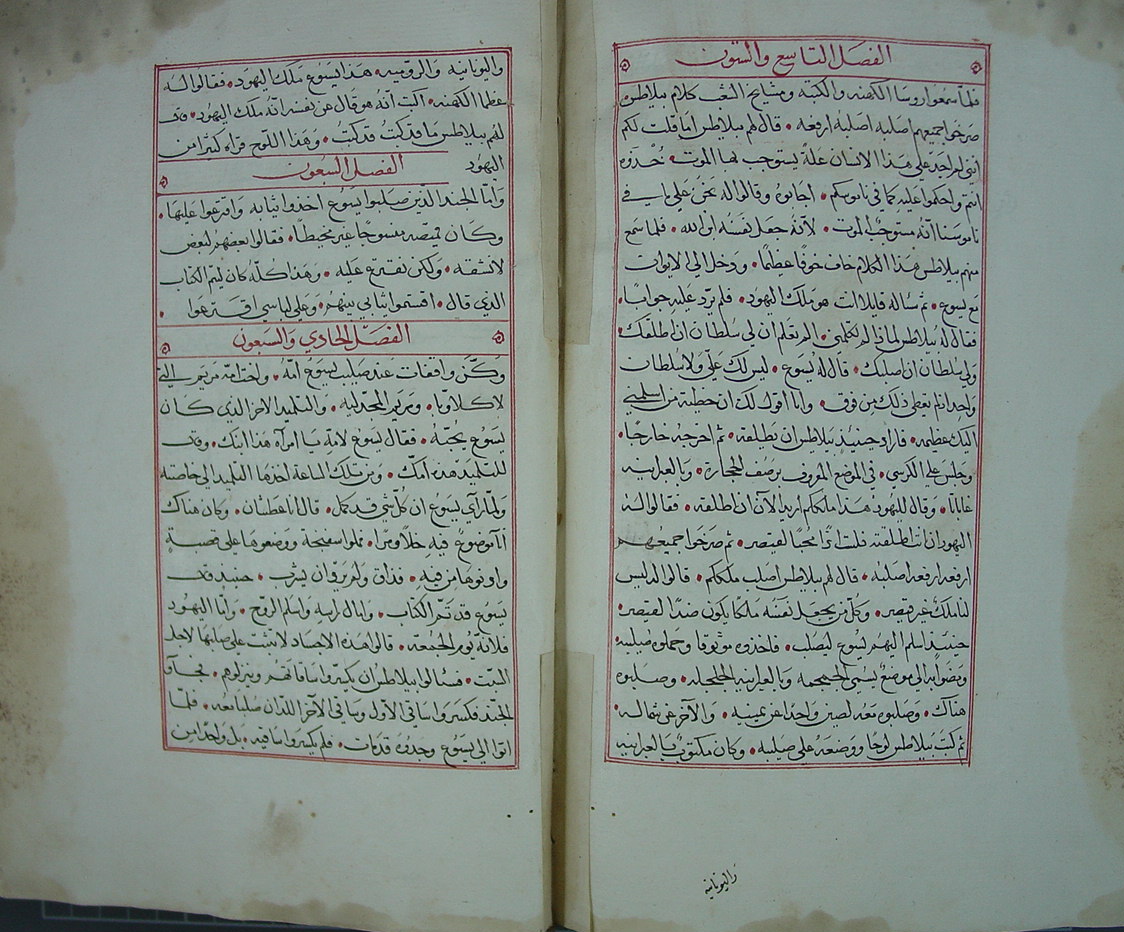 الفصل التاسع والستون
فلما سمعوا روسا الكهنه والكتبه ومشايخ الشعب كلام بيلاطس
صرخوا جميعهم اصلبه اصلبه ارفعه • قال لهم بيلاطس اما قلت لكم
انني لم اجد على هذا الانسان علة يستوجب بها الموت • خذوه
انتم واحكموا عليه كما في ناموسكم • اجابوه وقالوا له نحن على ما في
ناموسنا انه مستوجب الموت • لانه جعل نفسه ابن الله • فلما سمع
منهم بيلاطس هذا الكلام خاف خوفا عظيما • ودخل الى الايوان
مع يسوع • ثم ساله قايلا انت هو ملك اليهود • فلم يرد عليه جوابا •
فقال له بيلاطس لماذا لم تكلمني • الم تعلم ان لي سلطان ان اطلقك
ولي سلطان ان اصلبك • قال له يسوع • ليس لك علي ولا سلطان
واحد ان لم يعطى ذلك من فوق • وانا اقول لك ان خطية من اسلمني
اليك عظيمه • فاراد حينيذ بيلاطس ان يطلقه • ثم اخرجه خارجا •
وجلس على الكرسي • في الموضع المعروف برصف الحجارة • وبالعبرانيه
غاباثا • وقال لليهود هذا ملككم اريد الان ان اطلقه • فقالوا له
اليهود ان انت اطلقته فلست اذا محبا لقيصر • ثم صرخوا جميعهم
ارفعه ارفعه اصلبه • قال لهم بيلاطس اصلب ملككم • قالوا له ليس
لنا ملك غير قيصر • وكل من يجعل نفسه ملكا يكون ضدا لقيصر •
حينيذ اسلم اليهم يسوع ليصلب • فاخذوه موثوقا وحملوه صليبه
ومضوا به الى موضع يسمى الجمجمه وبالعبرانيه الجلجله • وصلبوه
هناك • وصلبوه معه لصين واحدا عن يمينه • والاخر عن شماله •
ثم كتب بيلاطس لوحا ووضعه على صليبه • وكان مكتوب بالعبرانيه
واليونانيه
واليونانيه والروميه • هذا يسوع ملك اليهود • فقالوا له
عظما الكهنه • اكتب انه هو قال عن نفسه انه ملك اليهود • قال
لهم بيلاطس ما قد كتبت قد كتبت • وهذا اللوح قراه كثيرا من
اليهود
الفصل السبعون
واما الجند الذين صلبوا يسوع اخذوا ثيابه واقترعوا عليها •
وكان قميصه منسوجا غير مخيطا • فقالوا بعضهم لبعض
لا نشقه • ولكن نقترع عليه • وهذا كله كان ليتم الكتاب
الذي قال • اقتسموا ثيابي بينهم • وعلى لباسي اقترعوا •
الفصل الحادي والسبعون
وكن واقفات عند صليب يسوع امه • واخت امه مريم التي
لاكلاوبا • ومريم المجدليه • والتلميد الاخر الذي كان
يسوع يحبه • فقال يسوع لامه يا امراه هذا ابنك • وقال
للتلميد هذه امك • ومن تلك الساعه اخذها التلميد الى خاصته
ولما راى يسوع ان كل شي قد كمل • قال انا عطشان • وكان هناك
انا موضوع فيه خلا ومرا • فملوا سفنجة ووضعوها على قصبة
وادنوها من فيه • فذاق ولم يرد ان يشرب • حينيذ قال
يسوع قد تم الكتاب • وامال راسه واسلم الروح • واما اليهود
فلانه يوم الجمعه • قالوا هذه الاجساد لا تثبت على صلبها لاجل
السبت • فسالوا بيلاطس ان يكسروا ساقاتهم وينزلوهم • فجاوا
الجند فكسروا ساقي الاول وساقي الآخر اللذان صلبا معه • فلما
اتوا الى يسوع وجدوه قد مات • فلم يكسروا ساقيه • بل واحدا من